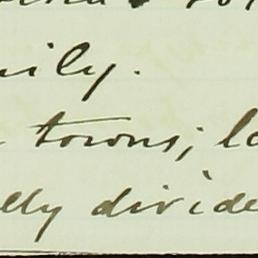 ily.
towns; lo
lly divide